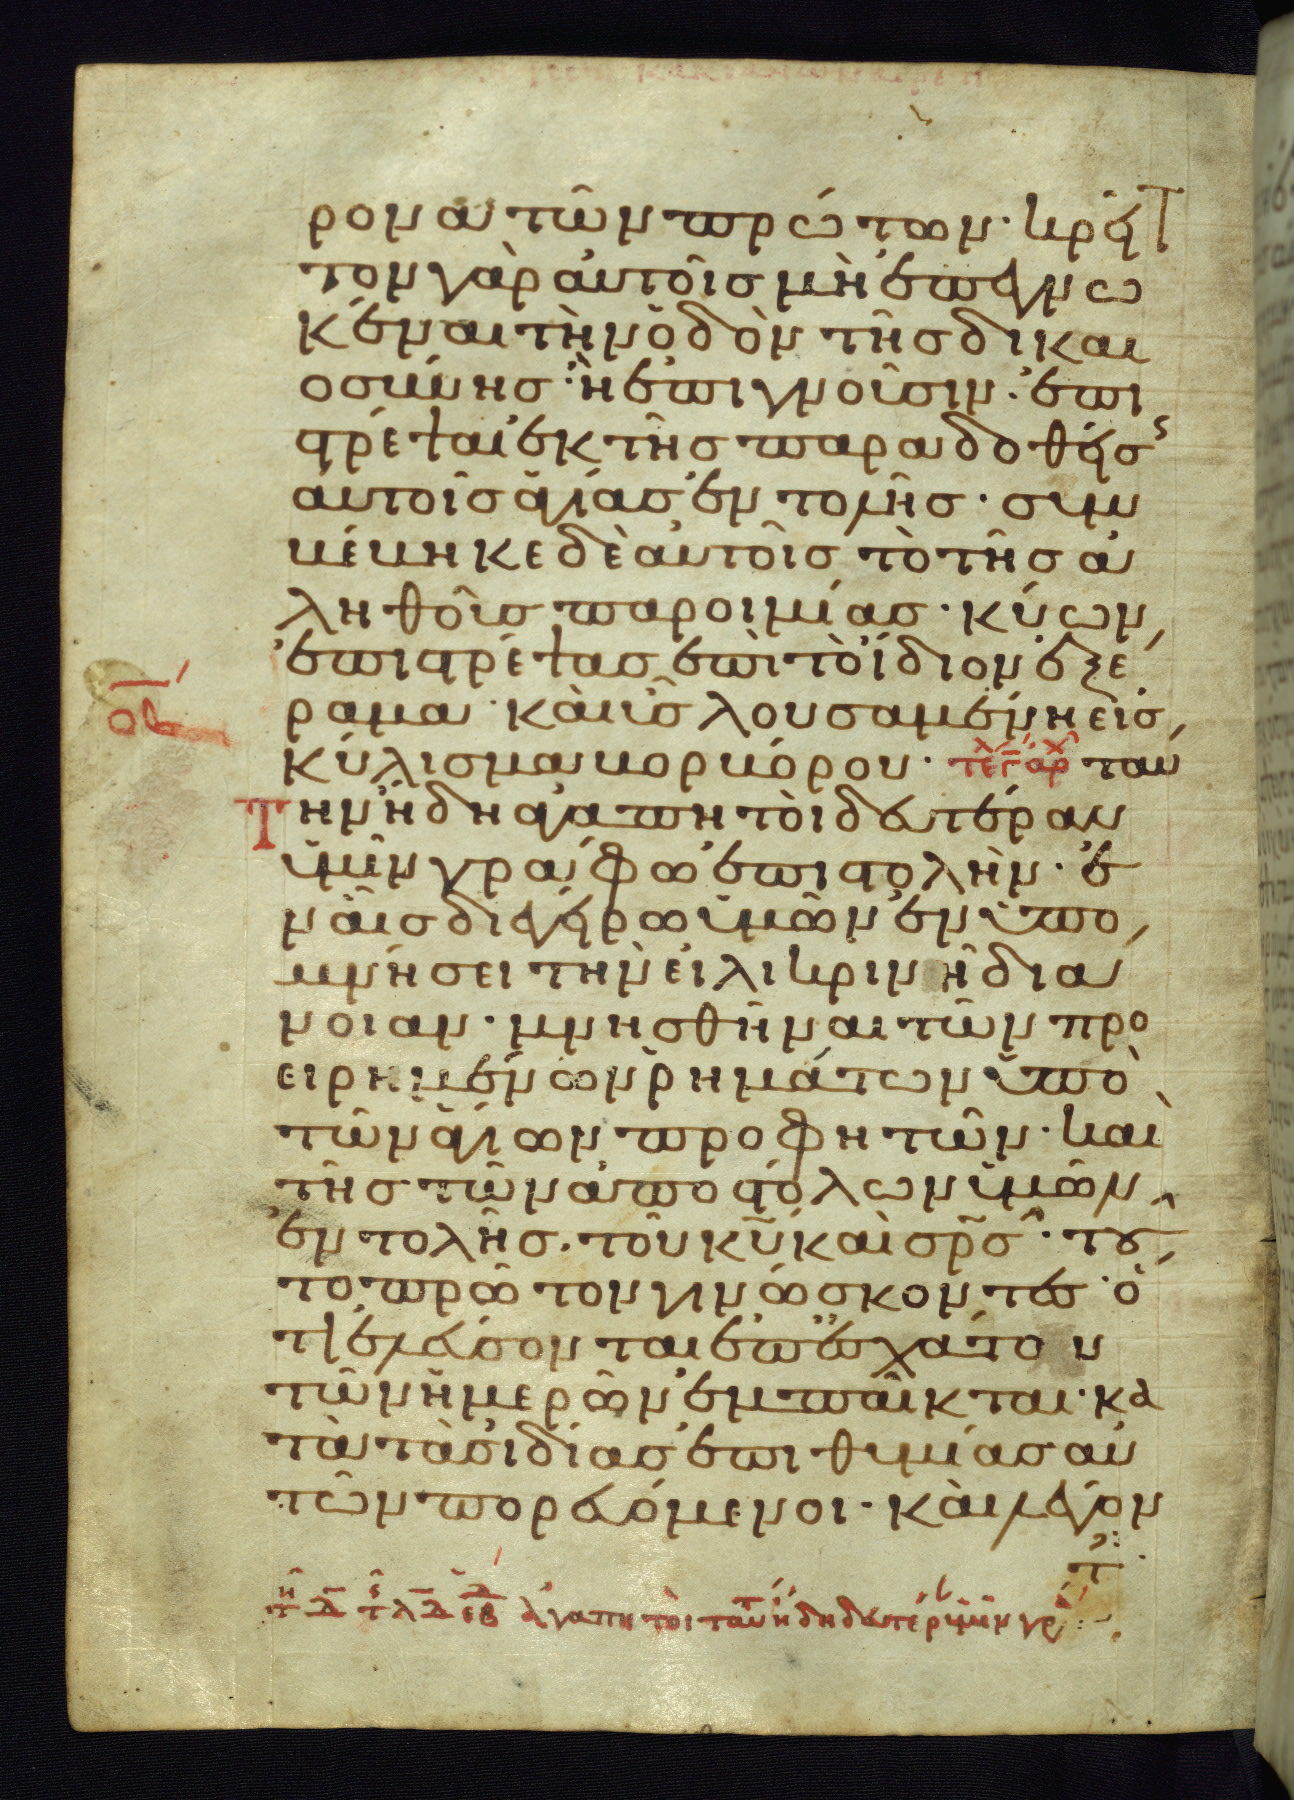 ρονα τῶν πρώτων· κρεῖτ
τον γὰρ αὐτοῖς μὴ ἐπεγνω
κέναι τὴν ὁδὸν τῆς δικαι
οσύνης· ἢ ἐπιγνοῦσιν· ἐπι
στρέψαι ἐκ τῆς παραδοθείσς
αὐτοῖς ἁγίας ἐντολῆς· συμ
βέβηκε δὲ αὐτοῖς τὸ τῆς ἀ
ληθοῖς παροιμίας· κύων,
ἐπιστρέψας ἐπὶ τὸ ἴδιον ἐξέ
ραμα· καὶ ὗς λουσαμένη εἰς,
οβ
κύλισμα βορβόρου· ταυ
Την ἤδη ἀγαπητοὶ δευτέραν
ὑμῖν γράφω ἐπιστολὴν· ἐ
ν αἷς διεγείρω ὑμῶν ἐν ὑπο,
μνήσει τὴν εἰλικρινῆ δια
νοιαν· μνησθῆναι τῶν προ
ειρημένων ῥημάτων ὑπὸ
τῶν ἁγίων προφητῶν· καὶ
τῆς τῶν ἀποστόλων ὑμῶν,
ἐντολῆς· τοῦ κυ̅ καὶ σρ̅ς· τοῦ,
το πρῶτον γινώσκοντες· ὅ
τι ἐλεύσονται ἐπ' ἐσχάτον
τῶν ἡμερῶν ἐμπαῖκται· κα
τὰ τὰς ἰδίας ἐπιθυμίας αὐ
τῶν πορευόμενοι· καὶ λέγον
ἀγαπητοὶ ταύτ ἤδη δευτέρ ὑμῖν γρ